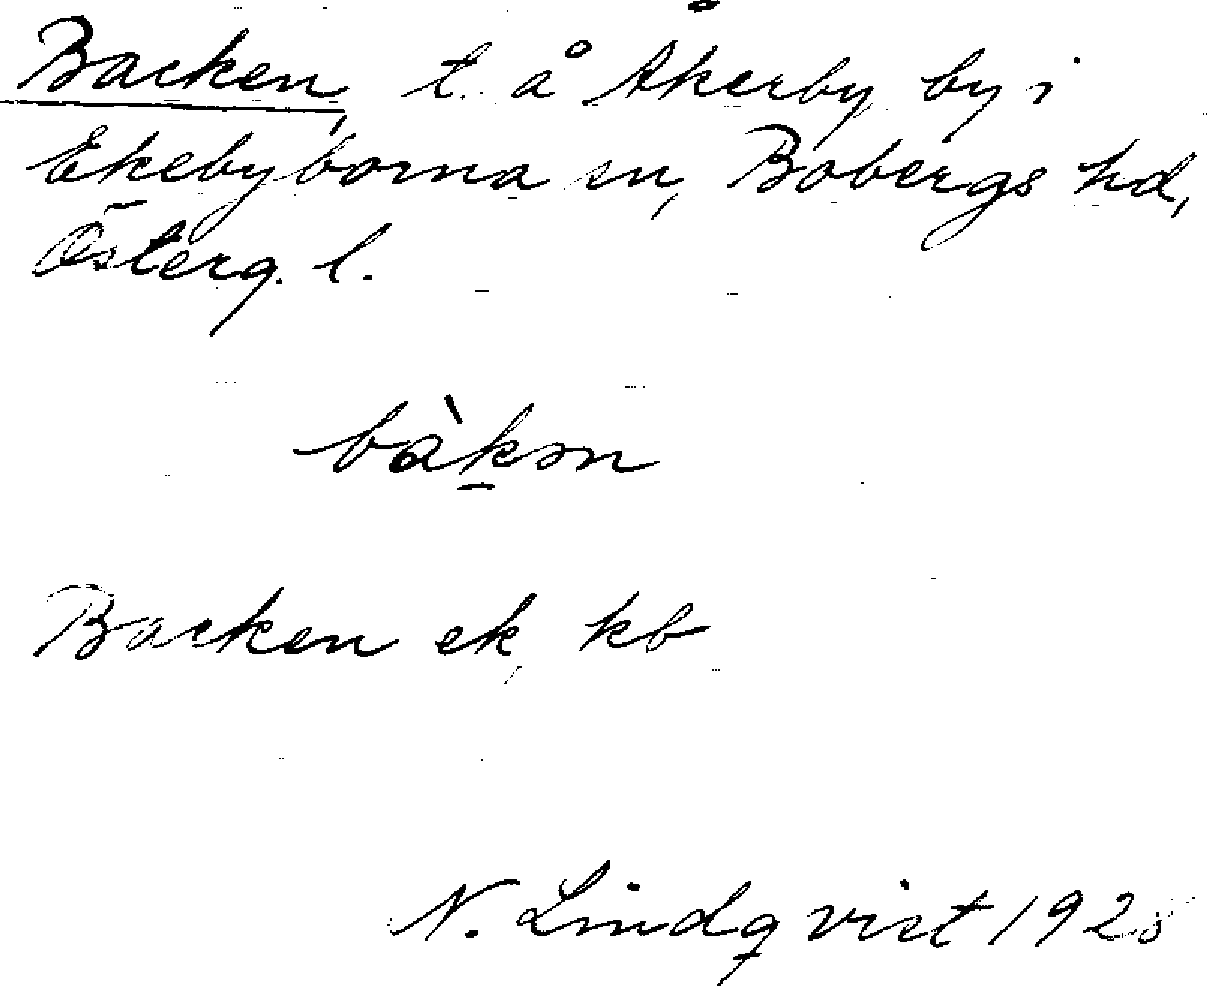 Backen, t. å Åkerby by i
Ekebyborna sn, Bobergs hd,
Österg. l.
bàk̠ən
Backen ek kb
N. Lindqvist 1925